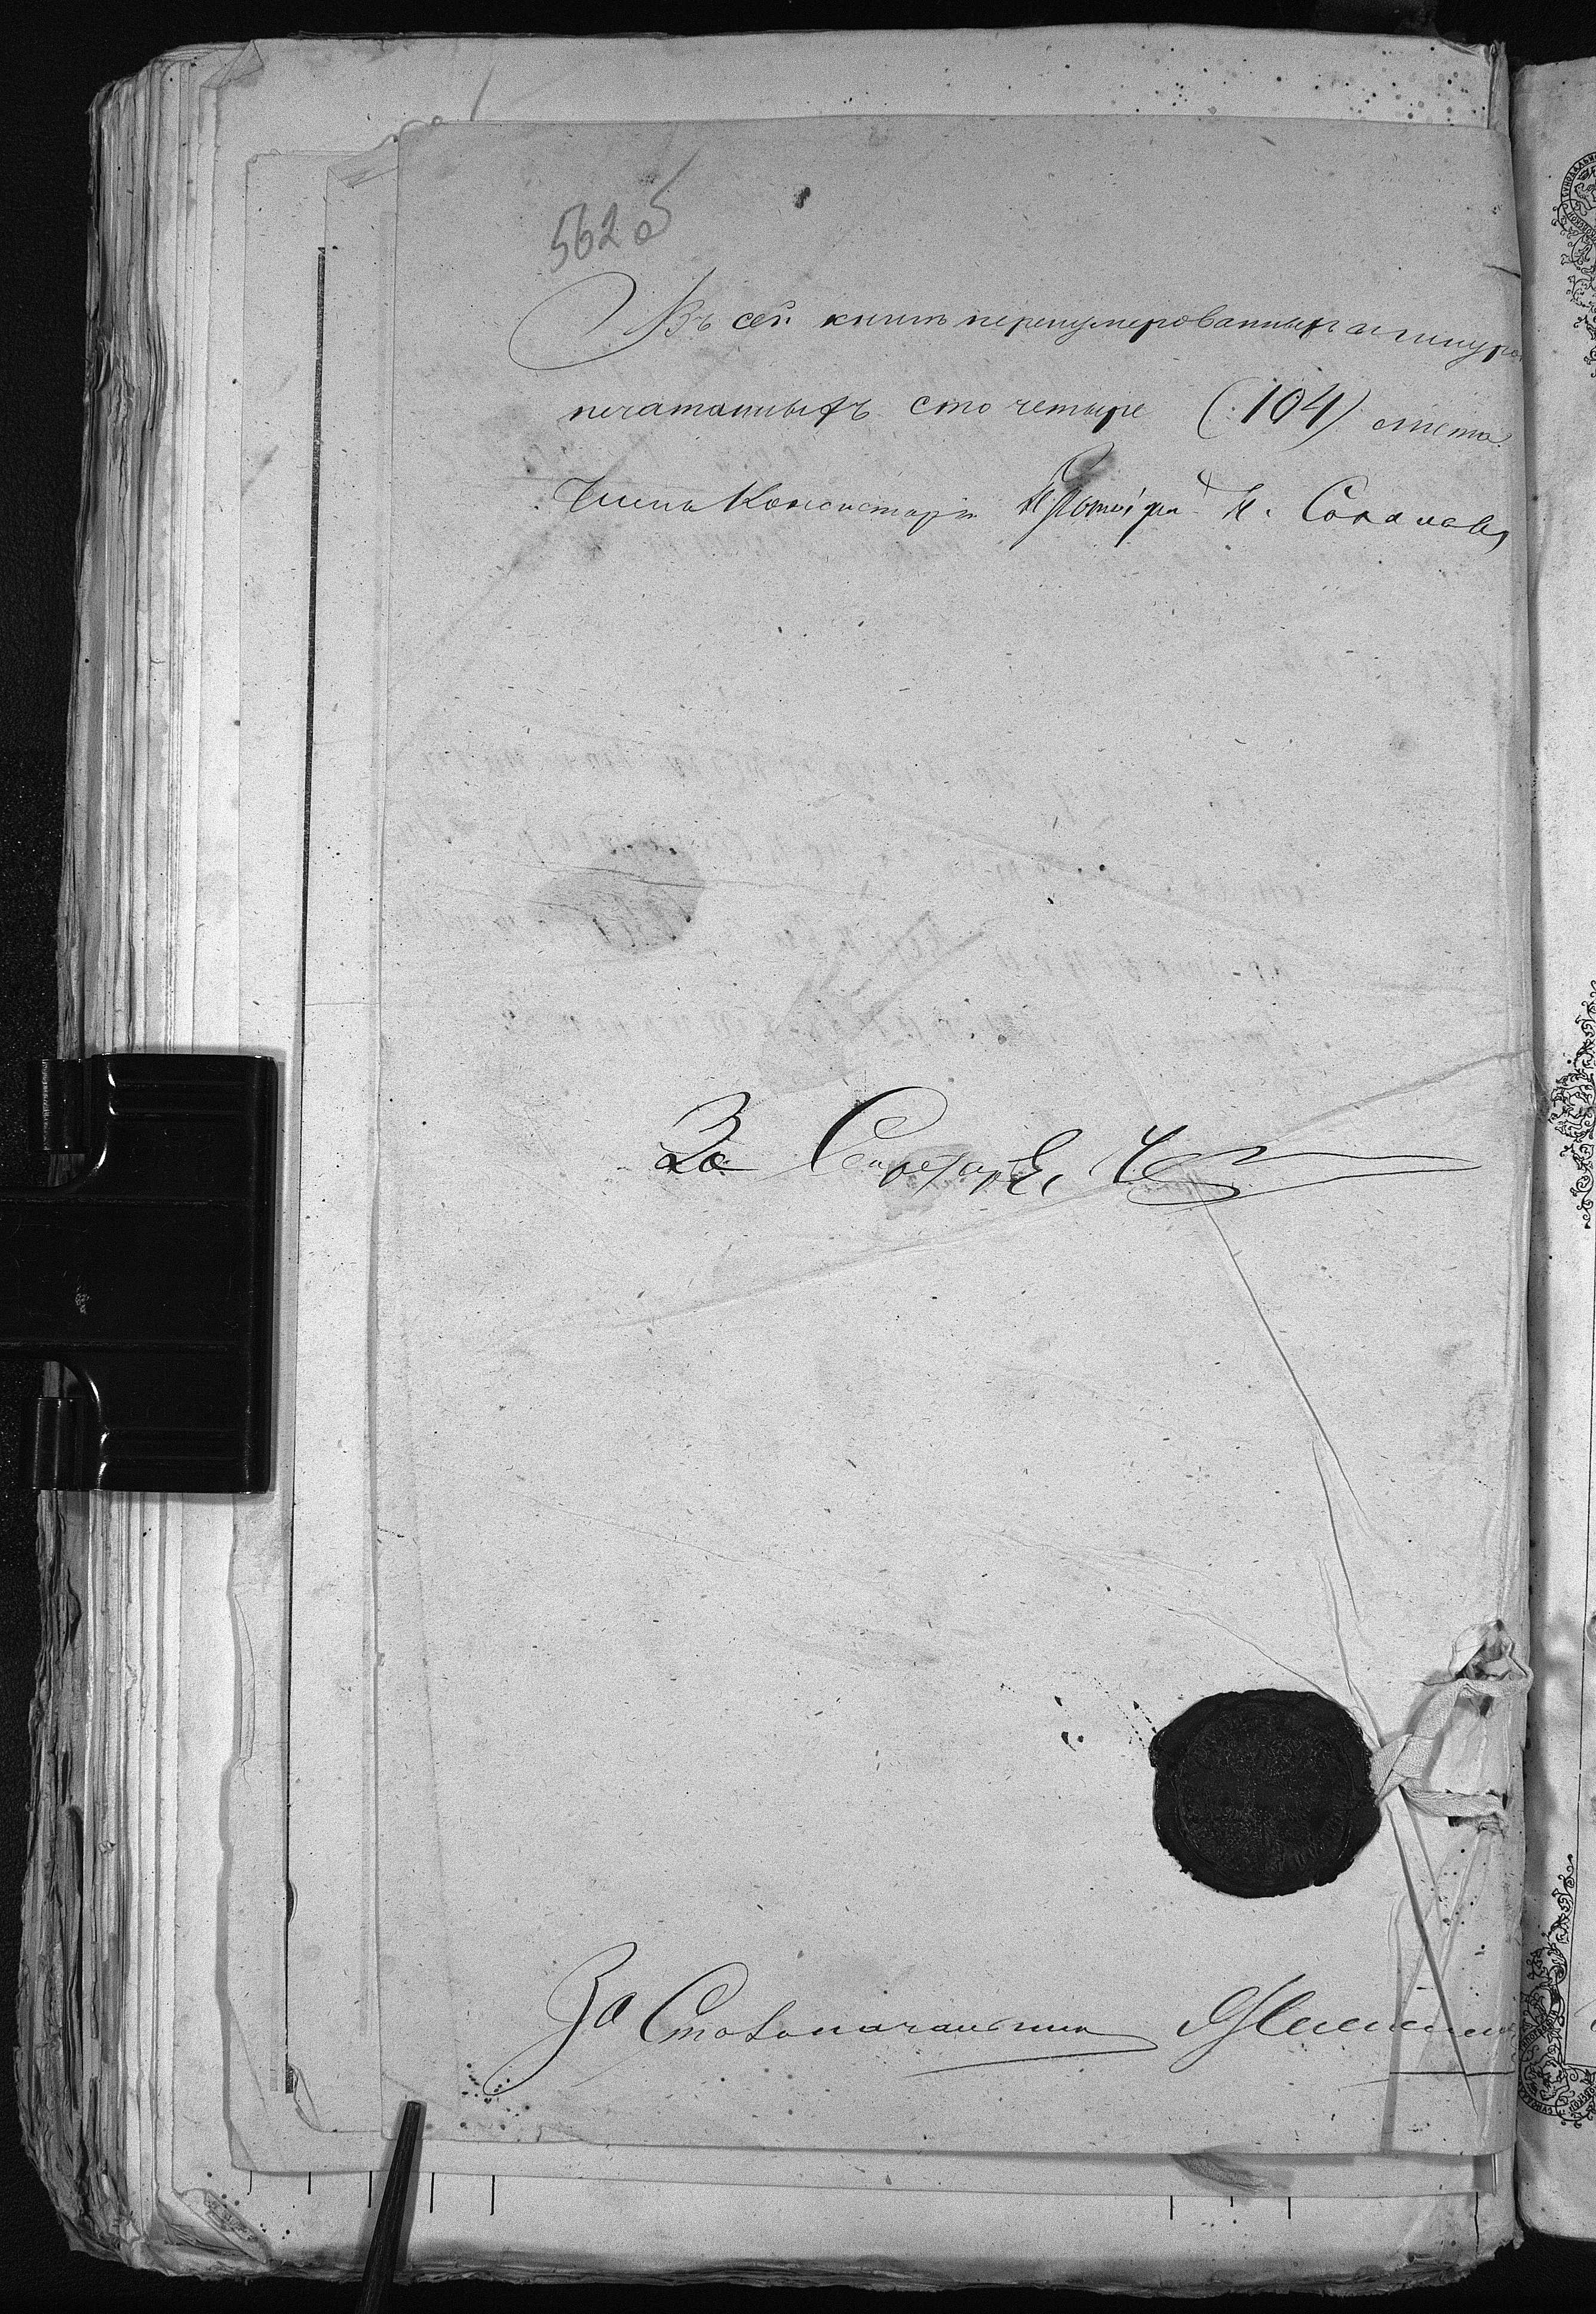 562 об
Въ сей книгѣ перенумерованныхъ и шнуро
печатанныхъ сто четыре (:104) листа.
Членъ Консисторіи Протоіерей Н. Соколовъ
За Секретаря
За Столоначальника